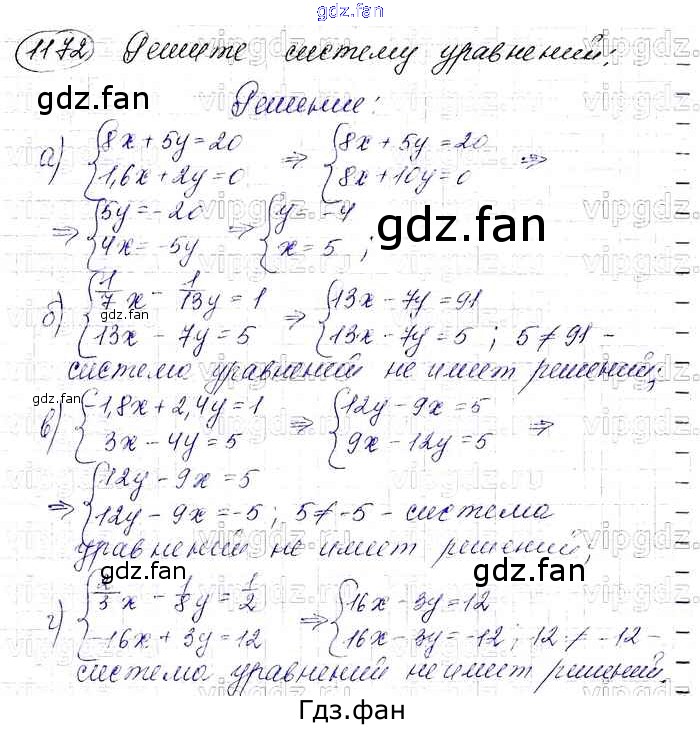 gdz.fan
1172 Решите систему уравнений:
gdz.fan
Решение:
а) {8x + 5y = 20 ⇒ {8x + 5y = 20 ⇒
{1,6x + 2y = 0 {8x + 10y = 0
⇒ {5y = -20 ⇒ {y = -4
{4x = -5y {x = 5 ;
gdz.fan
б) {1/7 x - 1/13 y = 1 ⇒ {13x - 7y = 91
gdz.fan
{13x - 7y = 5 {13x - 7y = 5 ; 5 ≠ 91 -
система уравнений не имеет решений;
gdz.fan
в) {-1,8x + 2,4y = 1 ⇒ {12y - 9x = 5 ⇒
{3x - 4y = 5 {9x - 12y = 5
⇒ {12y - 9x = 5
{12y - 9x = -5 ; 5 ≠ -5 - система
уравнений не имеет решений;
gdz.fan
gdz.fan
г) {2/3 x - 1/8 y = 1/2 ⇒ {16x - 3y = 12
{-16x + 3y = 12 {16x - 3y = -12 ; 12 ≠ -12 -
система уравнений не имеет решений.
Гдз.фан